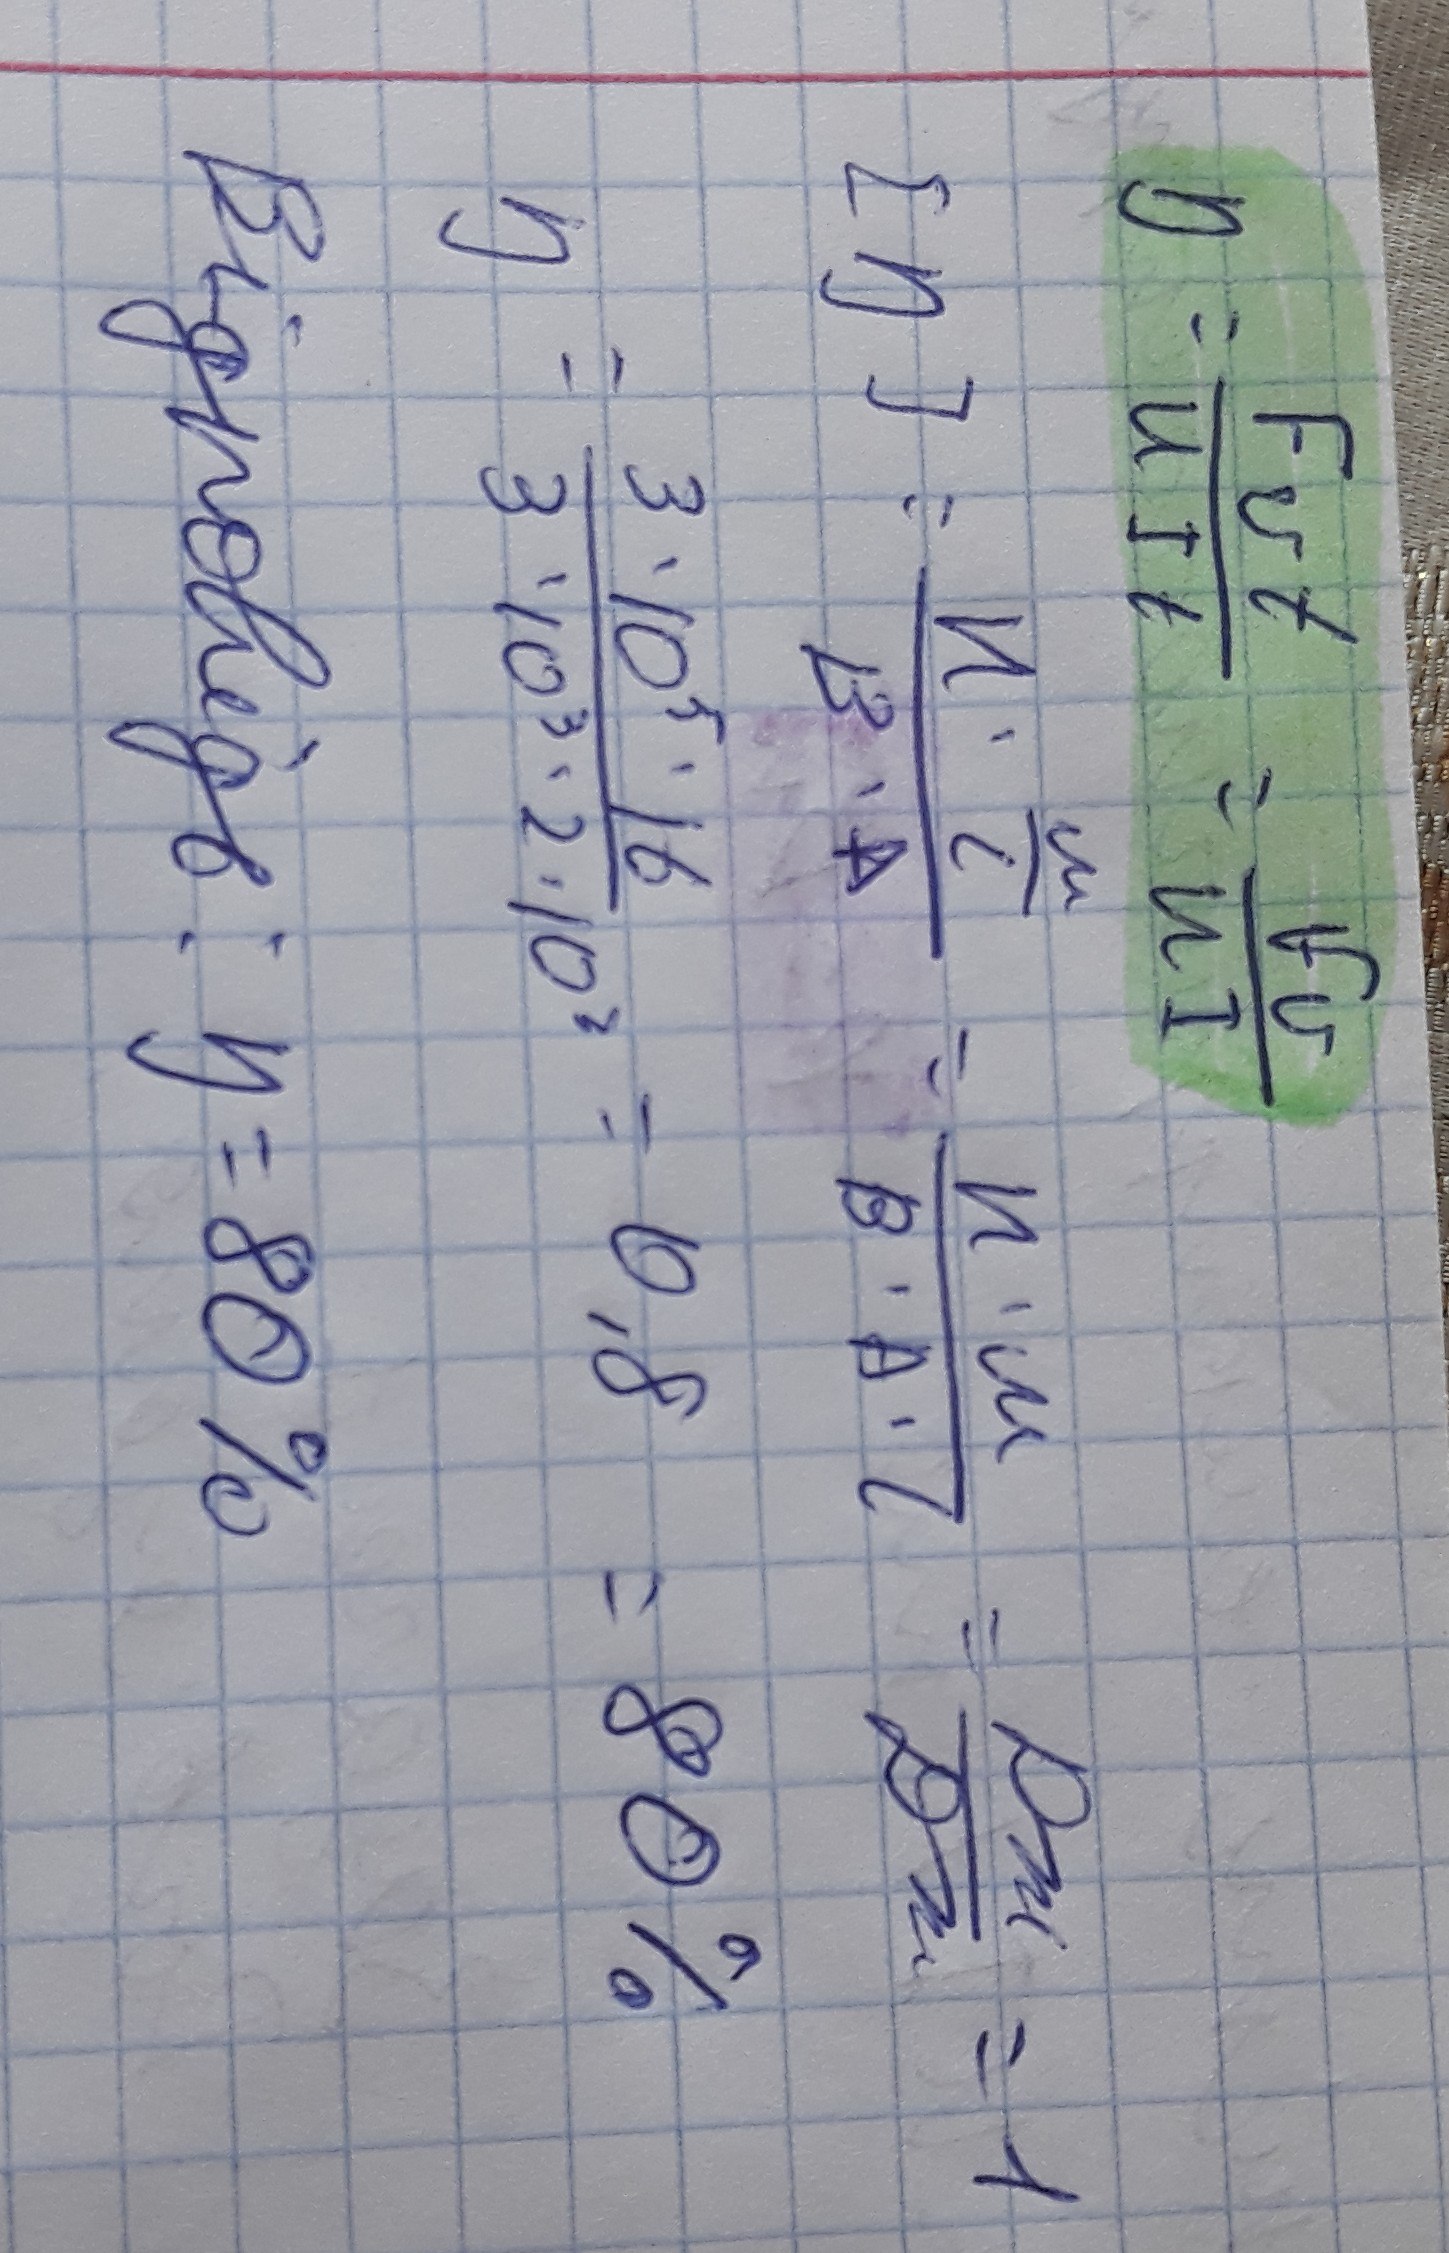 η = Fυt / UIt = Fυ / UI
[η] = Н · м/с / В · А = Н · м / В · А · с = Дж / Дж = 1
η = 3 · 10⁵ · 16 / 3 · 10³ · 2 · 10² = 0,8 = 80%
Відповідь: η = 80%